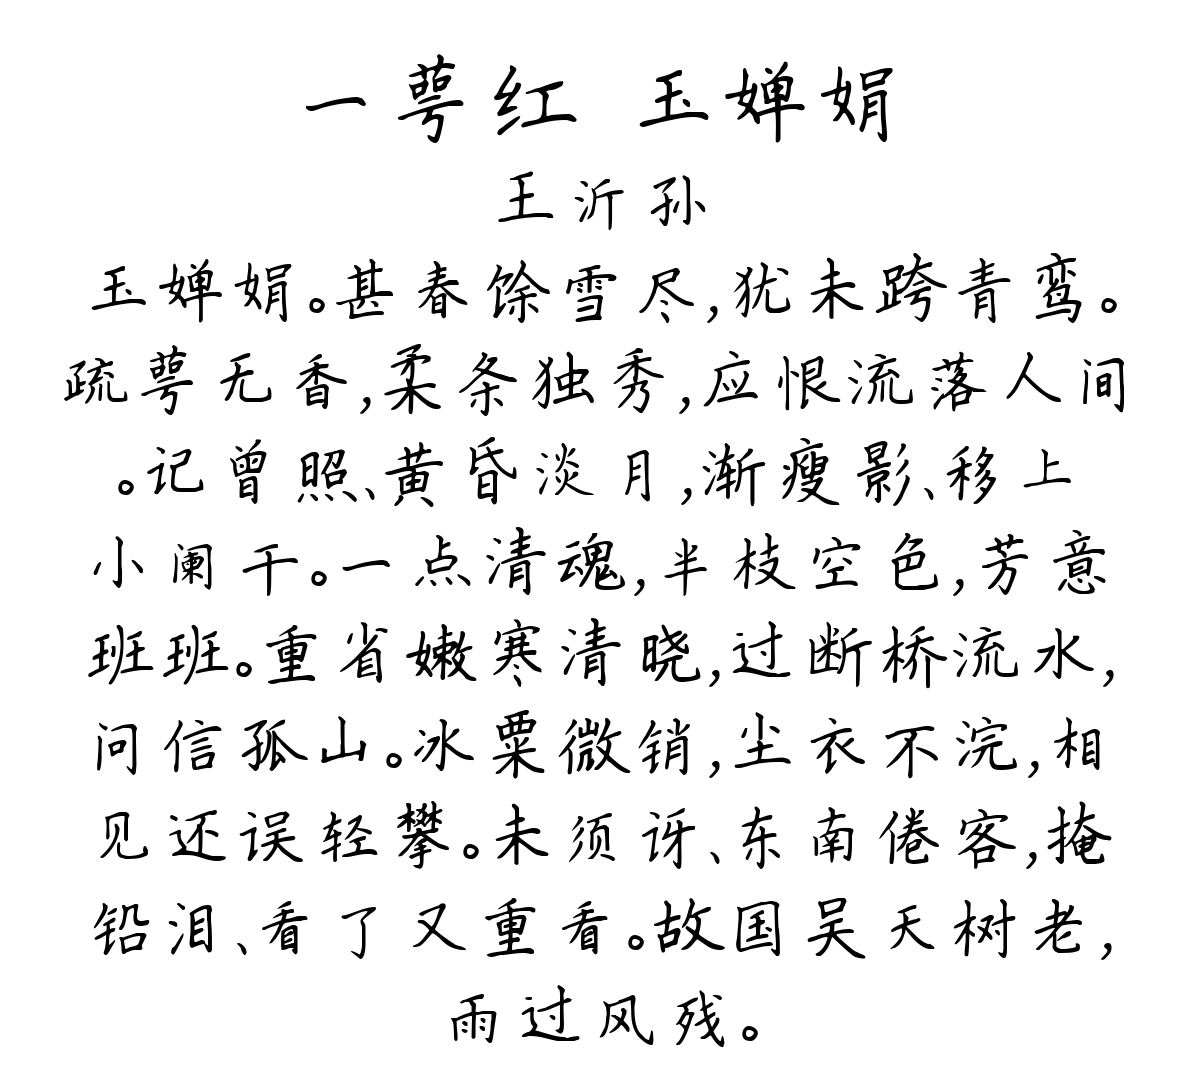 一萼红 玉婵娟
王沂孙
玉婵娟。甚春馀雪尽,犹未跨青鸾。
疏萼无香,柔条独秀,应恨流落人间
。记曾照、黄昏淡月,渐瘦影、移上
小阑干。一点清魂,半枝空色,芳意
班班。重省嫩寒清晓,过断桥流水,
问信孤山。冰粟微销,尘衣不浣,相
见还误轻攀。未须讶、东南倦客,掩
铅泪、看了又重看。故国吴天树老,
雨过风残。